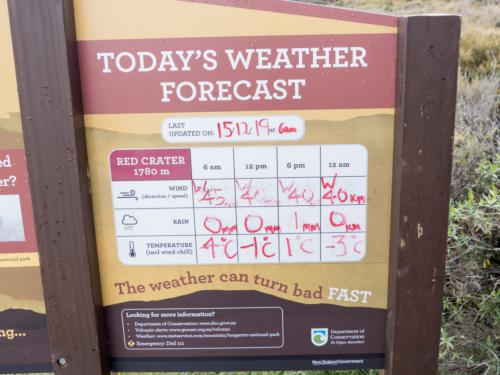 TODAY'S WEATHER
FORECAST
LAST
UPDATED ON: 15/12/19 at 6am
RED CRATER
1780 m
6 am 12 pm 6 pm 12 am
WIND
(direction / speed)
W 45 W 40 W 40 W 40 km
RAIN
0mm 0mm 1mm 0mm
TEMPERATURE
(incl wind chill)
4°C -1°C 1°C -3°C
The weather can turn bad FAST
Looking for more information?
• Department of Conservation: www.doc.govt.nz
• Volcanic alerts: www.geonet.org.nz/volcano
• Weather: www.metservice.com/mountain/tongariro-national-park
Emergency: Dial 111
Department of
Conservation
Te Papa Atawhai
New Zealand Government
ed
er?
national-park
ng...